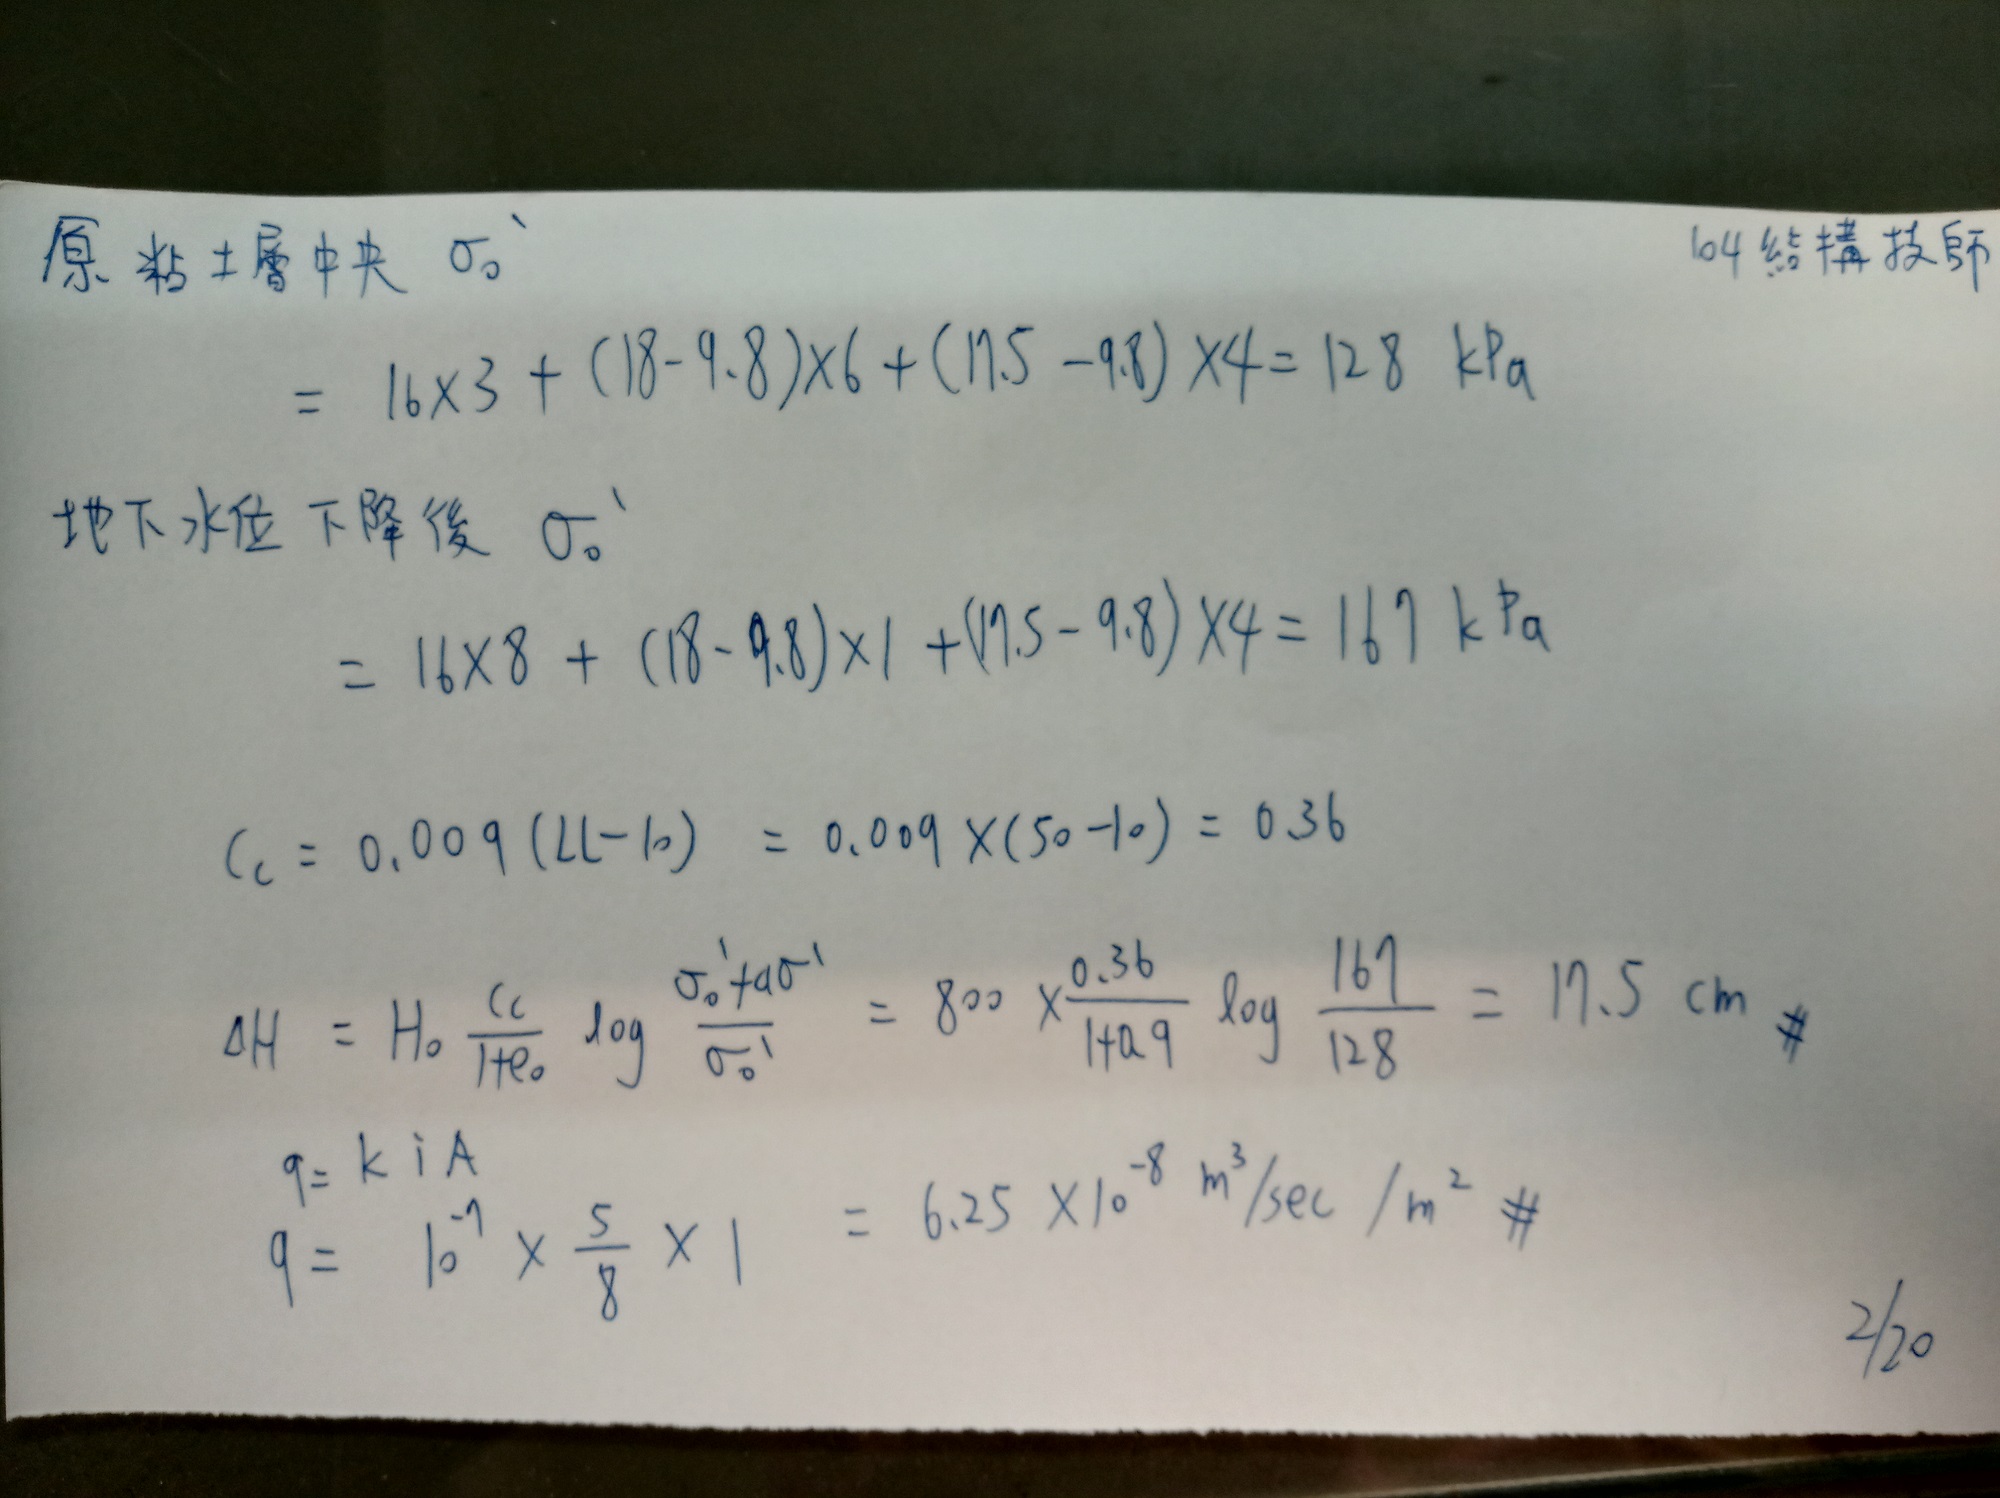 原粘土層中央 σ₀'
104結構技師
= 16×3 + (18-9.8)×6 + (17.5-9.8)×4 = 128 kPa
地下水位下降後 σ₀'
= 16×8 + (18-9.8)×1 + (17.5-9.8)×4 = 167 kPa
Cc = 0.009(LL-10) = 0.009×(50-10) = 0.36
ΔH = H₀ Cc/(1+e₀) log (σ₀'+Δσ')/σ₀' = 800 × 0.36/(1+0.9) log 167/128 = 17.5 cm #
q = k i A
q = 10⁻⁷ × 5/8 × 1 = 6.25 × 10⁻⁸ m³/sec /m² #
2/20